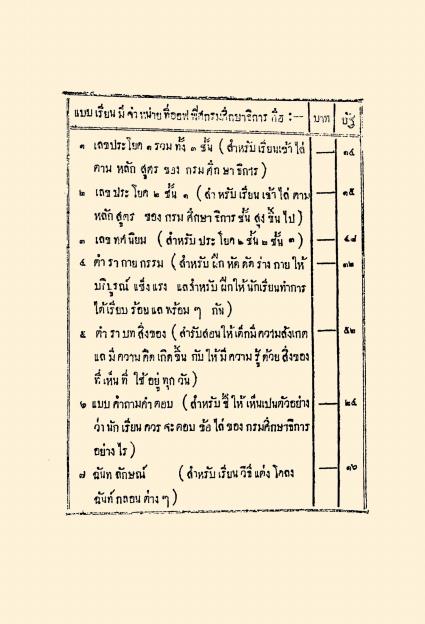 แบบเรียนมีจำหน่ายที่ออฟฟิศกรมศึกษาธิการ คือ :— บาท อัฐ
๑ เลขประโยค ๑ รวมทั้ง ๓ ชั้น (สำหรับเรียนเข้าไล่ — ๑๔
ตามหลักสูตร ของกรมศึกษาธิการ)
๒ เลขประโยค ๒ ชั้น ๑ (สำหรับเรียนเข้าไล่ตาม — ๑๕
หลักสูตร ของกรมศึกษาธิการชั้นสูงขึ้นไป)
๓ เลขทศนิยม (สำหรับประโยค ๒ ชั้น ๒ ชั้น ๓) — ๔๘
๔ ตำรากายกรรม (สำหรับฝึกหัดดัดร่างกายให้ — ๓๒
บริบูรณ์ แข็งแรง แลสำหรับฝึกให้นักเรียนทำการ
ได้เรียบร้อนแลพร้อมๆ กัน)
๕ ตำราบทสิ่งของ (สำรับสอนให้เด็กมีความสังเกต — ๕๒
แลมีความคิดเกิดขึ้น กับให้มีความรู้ด้วยสิ่งของ
ที่เห็นที่ใช้อยู่ทุกวัน)
๖ แบบคำถามคำตอบ (สำหรับชี้ให้เห็นเปนตัวอย่าง — ๒๔
ว่านักเรียนควรจะตอบข้อไล่ของกรมศึกษาธิการ
อย่างไร)
๗ ฉันทลักษณ์ (สำหรับเรียนวิธีแต่งโคลง — ๑๖
ฉันท์กลอนต่างๆ)